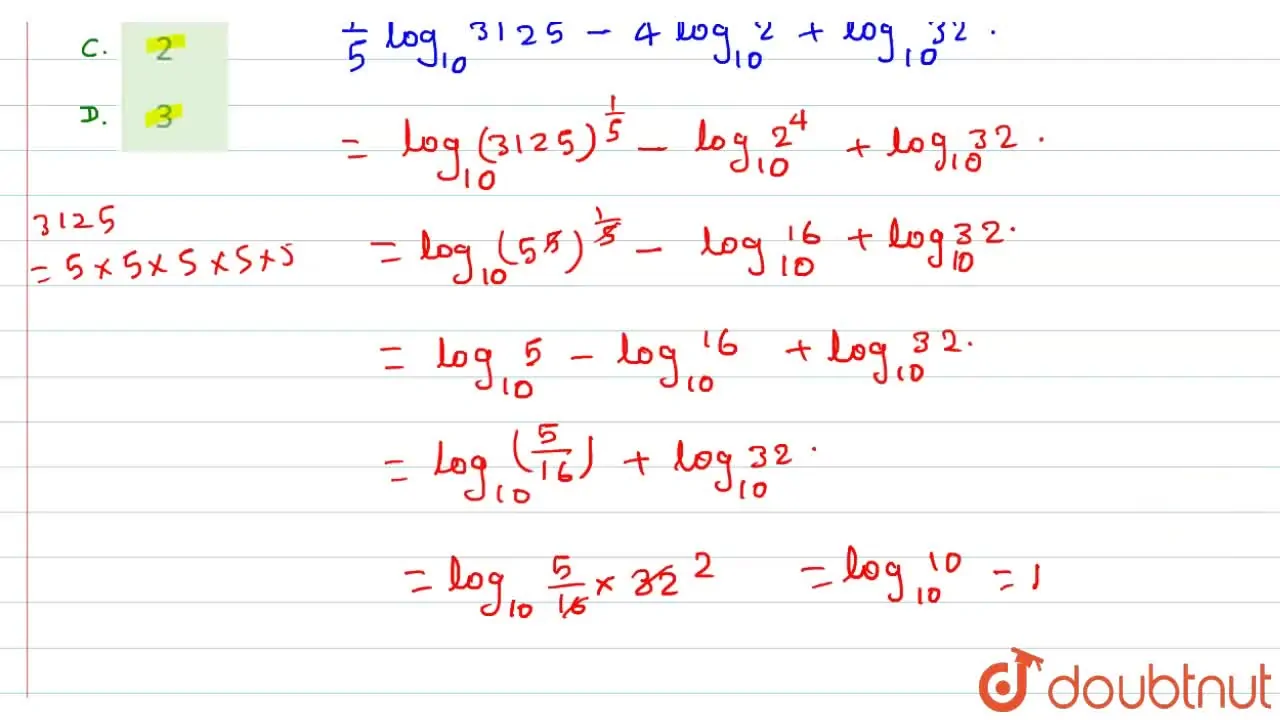 C. 2
1/5 log₁₀ 3125 - 4 log₁₀ 2 + log₁₀ 32.
D. 3
= log₁₀ (3125)^(1/5) - log₁₀ 2⁴ + log₁₀ 32.
3125
= 5×5×5×5×5
= log₁₀ (5⁵)^(1/5) - log₁₀ 16 + log₁₀ 32.
= log₁₀ 5 - log₁₀ 16 + log₁₀ 32.
= log₁₀ (5/16) + log₁₀ 32.
= log₁₀ 5/16 × 32 2 = log₁₀ 10 = 1
doubtnut